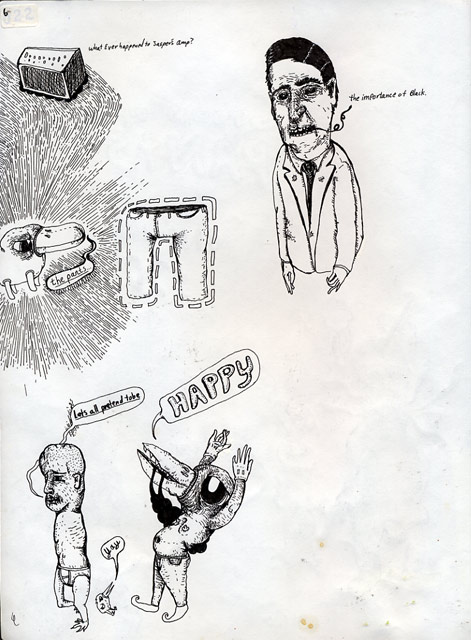 what Ever happened to Jasper's amp?
the importance of Black.
the pants
Lets all pretend tobe
HAPPY
Yay